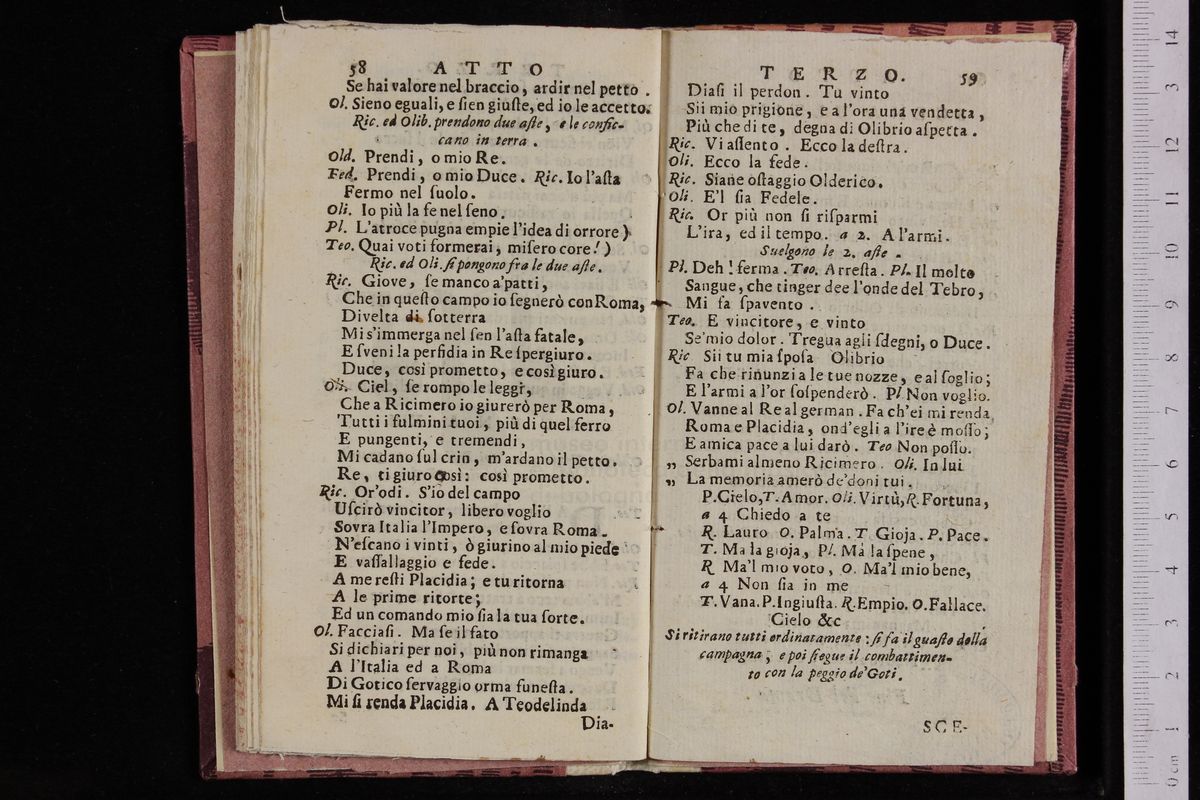 58 ATTO
Se hai valore nel braccio, ardir nel petto.
Ol. Sieno eguali, e ſien giuſte, ed io le accetto.
Ric. ed Olib. prendono due aſte, e le confic-
cano in terra.
Old. Prendi, o mio Re.
Fed. Prendi, o mio Duce. Ric. Io l'aſta
Fermo nel ſuolo.
Oli. Io più la fe nel ſeno.
Pl. L'atroce pugna empie l'idea di orrore)
Teo. Quai voti formerai, miſero core!)
Ric. ed Oli. ſi pongono fra le due aſte.
Ric. Giove, ſe manco a'patti,
Che in queſto campo io ſegnerò con Roma,
Divelta di ſotterra
Mi s'immerga nel ſen l'aſta fatale,
E ſveni la perfidia in Re ſpergiuro.
Duce, così prometto, e così giuro.
Oli. Ciel, ſe rompo le leggi,
Che a Ricimero io giurerò per Roma,
Tutti i fulmini tuoi, più di quel ferro
E pungenti, e tremendi,
Mi cadano ſul crin, m'ardano il petto.
Re, ti giuro così: così prometto.
Ric. Or'odi. S'io del campo
Uſcirò vincitor, libero voglio
Sovra Italia l'Impero, e ſovra Roma.
N'eſcano i vinti, ò giurino al mio piede
E vaſſallaggio e fede.
A me reſti Placidia; e tu ritorna
A le prime ritorte;
Ed un comando mio ſia la tua ſorte.
Ol. Facciaſi. Ma ſe il fato
Si dichiari per noi, più non rimanga
A l'Italia ed a Roma
Di Gotico ſervaggio orma funeſta.
Mi ſi renda Placidia. A Teodelinda
Dia-
TERZO. 59
Diaſi il perdon. Tu vinto
Sii mio prigione, e a l'ora una vendetta,
Più che di te, degna di Olibrio aſpetta.
Ric. Vi aſſento. Ecco la deſtra.
Oli. Ecco la fede.
Ric. Siane oſtaggio Olderico.
Oli. E'l ſia Fedele.
Ric. Or più non ſi riſparmi
L'ira, ed il tempo. a 2. A l'armi.
Suelgono le 2. aſte.
Pl. Deh! ferma. Teo. Arreſta. Pl. Il molto
Sangue, che tinger dee l'onde del Tebro,
Mi fa ſpavento.
Teo. E vincitore, e vinto
Se'mio dolor. Tregua agli ſdegni, o Duce.
Ric Sii tu mia ſpoſa Olibrio
Fa che rinunzi a le tue nozze, e al ſoglio;
E l'armi a l'or ſoſpenderò. Pl Non voglio.
Ol. Vanne al Re al german. Fa ch'ei mi renda
Roma e Placidia, ond'egli a l'ire è moſſo;
E amica pace a lui darò. Teo Non poſſo.
„ Serbami almeno Ricimero. Oli. In lui
„ La memoria amerò de'doni tui.
P. Cielo, T. Amor. Oli. Virtù, R. Fortuna,
a 4 Chiedo a te
R. Lauro O. Palma. T Gioja. P. Pace.
T. Ma la gioja, Pl. Ma la ſpene,
R Ma'l mio voto, O. Ma'l mio bene,
a 4 Non ſia in me
T. Vana. P. Ingiuſta. R. Empio. O. Fallace.
Cielo &c
Si ritirano tutti ordinatamente: ſi fa il guaſto della
campagna; e poi ſiegue il combattimen-
to con la peggio de'Goti.
SCE-
14
13
12
11
10
9
8
7
6
5
4
3
2
1
0 cm